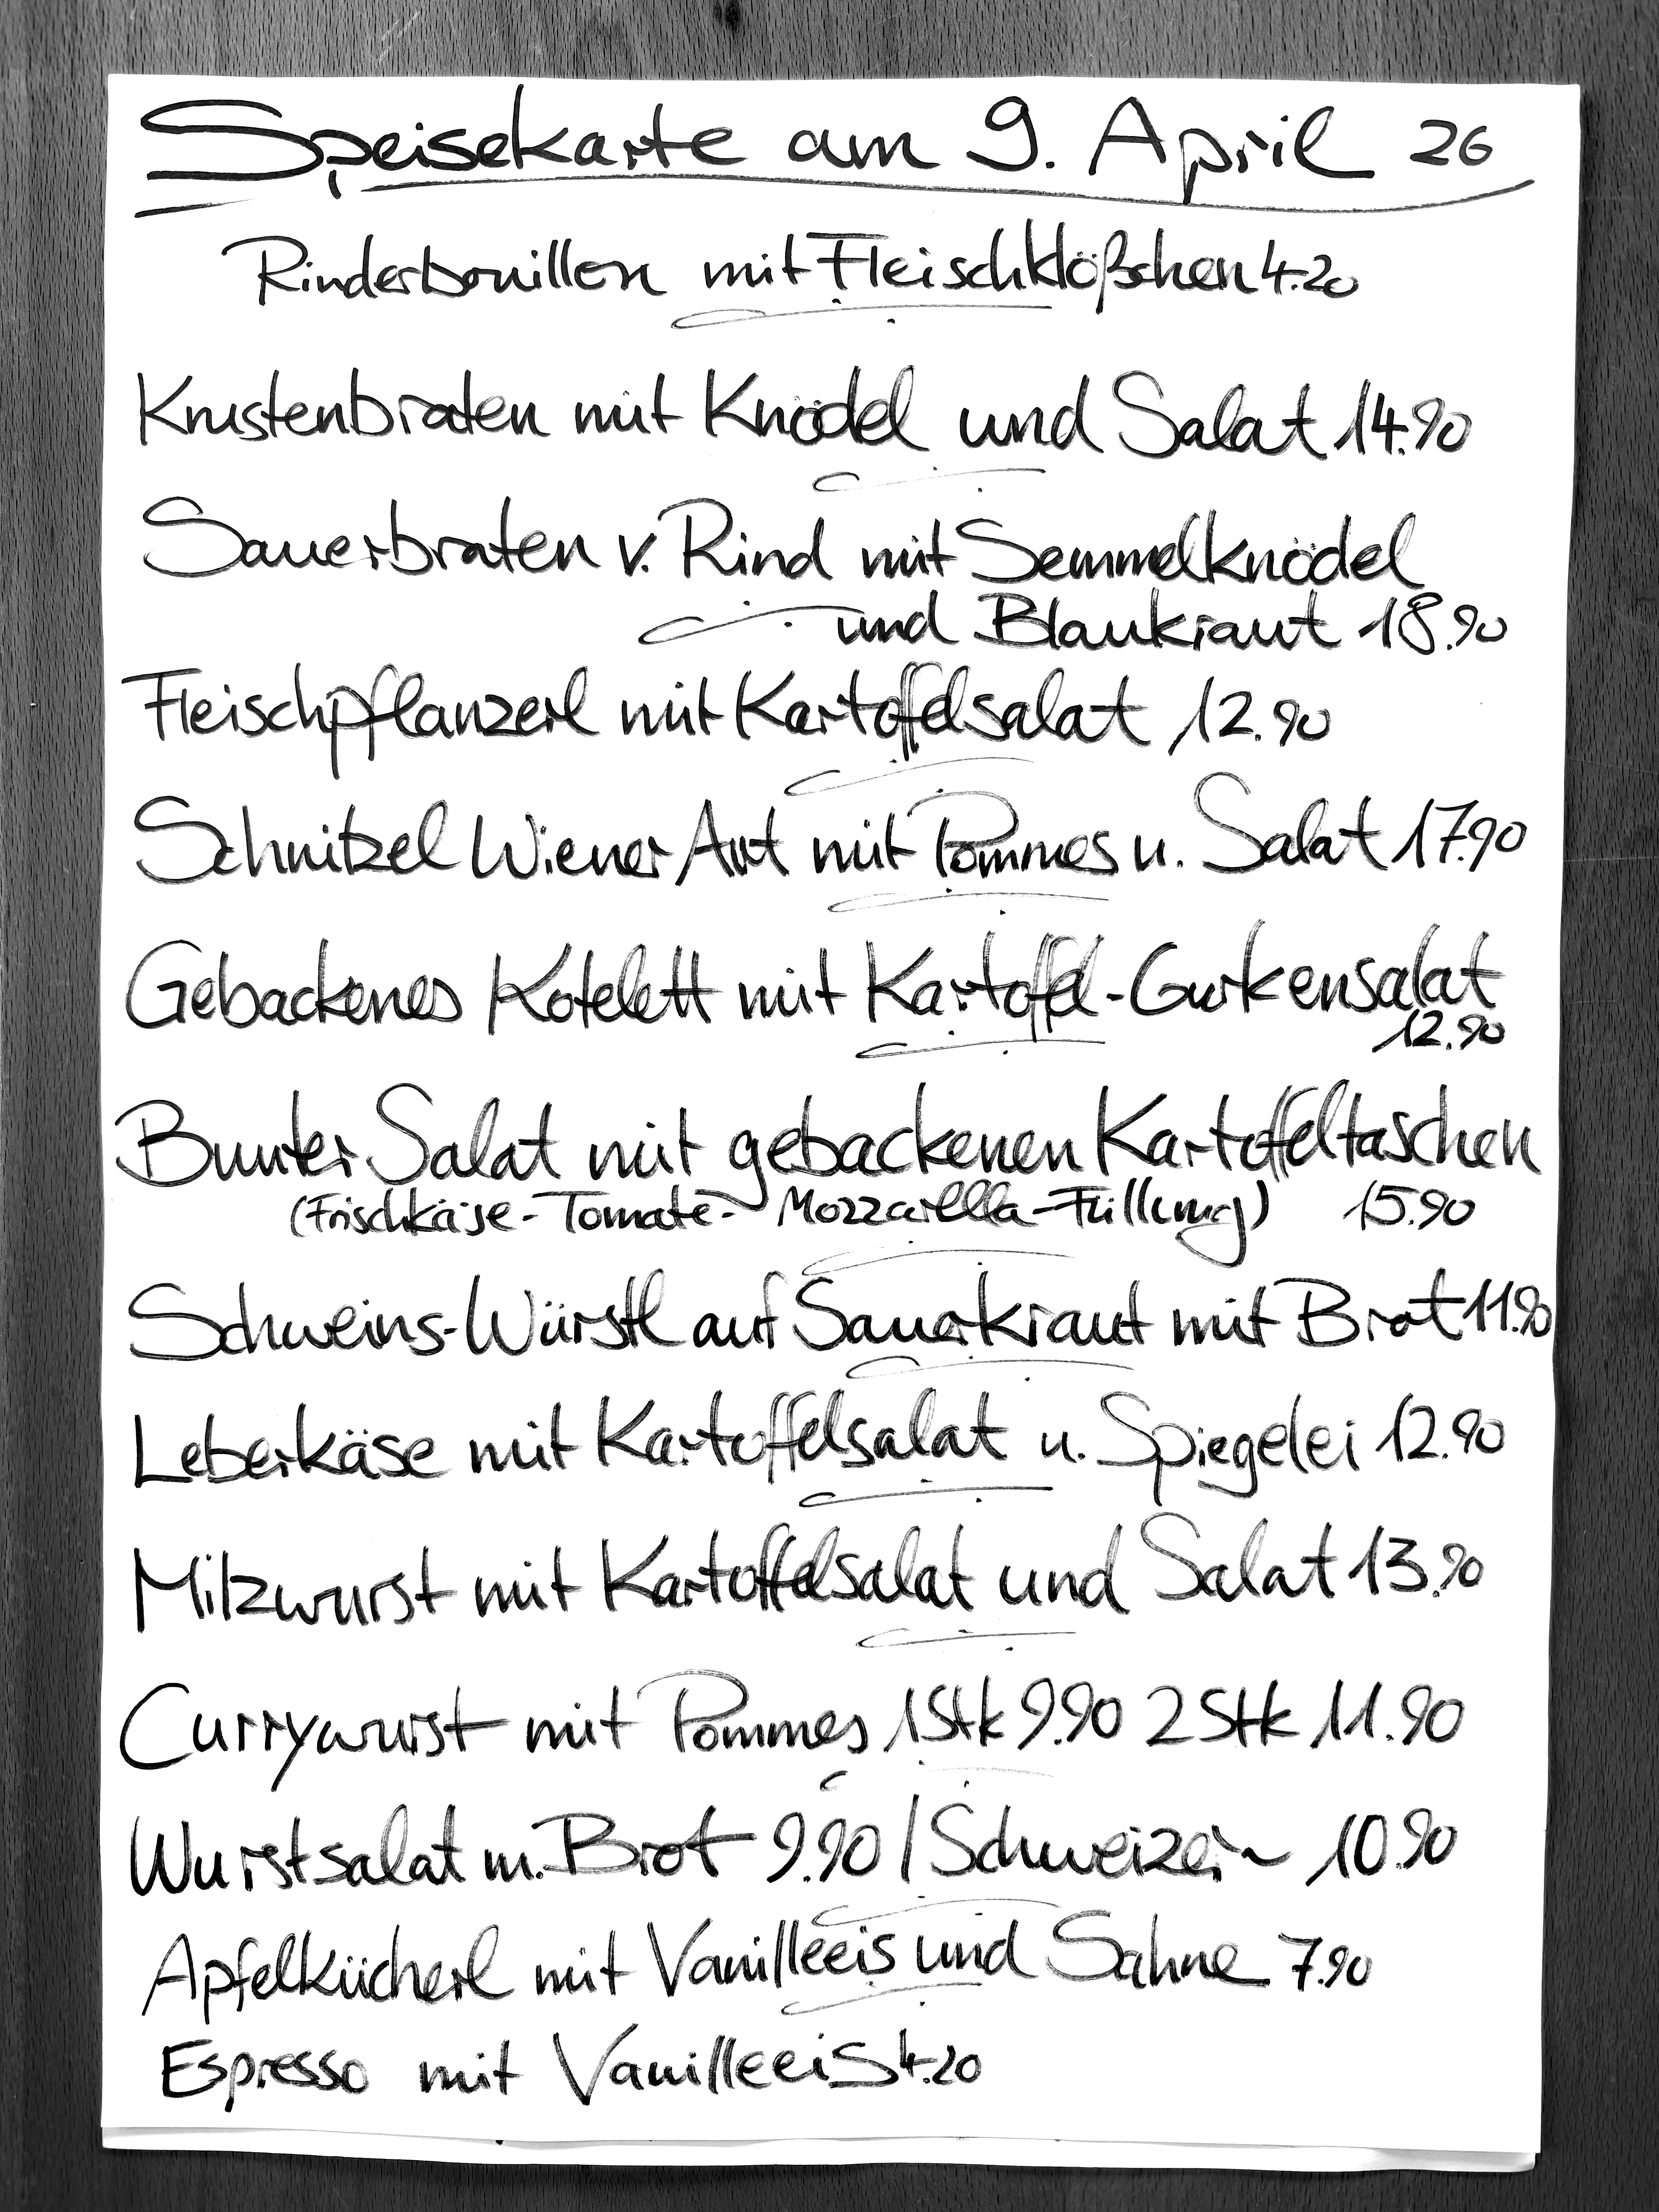 Speisekarte am 9. April 26
Rinderbouillon mit Fleischklößchen 4.20
Krustenbraten mit Knödel und Salat 14.90
Sauerbraten v. Rind mit Semmelknödel
und Blaukraut 18.90
Fleischpflanzerl mit Kartoffelsalat 12.90
Schnitzel Wiener Art mit Pommes u. Salat 17.90
Gebackenes Kotelett mit Kartoffel-Gurkensalat
12.90
Bunter Salat mit gebackenen Kartoffeltaschen
(Frischkäse-Tomate-Mozzarella-Füllung) 15.90
Schweins-Würstl auf Sauerkraut mit Brot 11.90
Leberkäse mit Kartoffelsalat u. Spiegelei 12.90
Milzwurst mit Kartoffelsalat und Salat 13.90
Currywurst mit Pommes 1 Stk 9.90 2 Stk 11.90
Wurstsalat m. Brot 9.90 / Schweizer ~ 10.90
Apfelkücherl mit Vanilleeis und Sahne 7.90
Espresso mit Vanilleeis 4.20